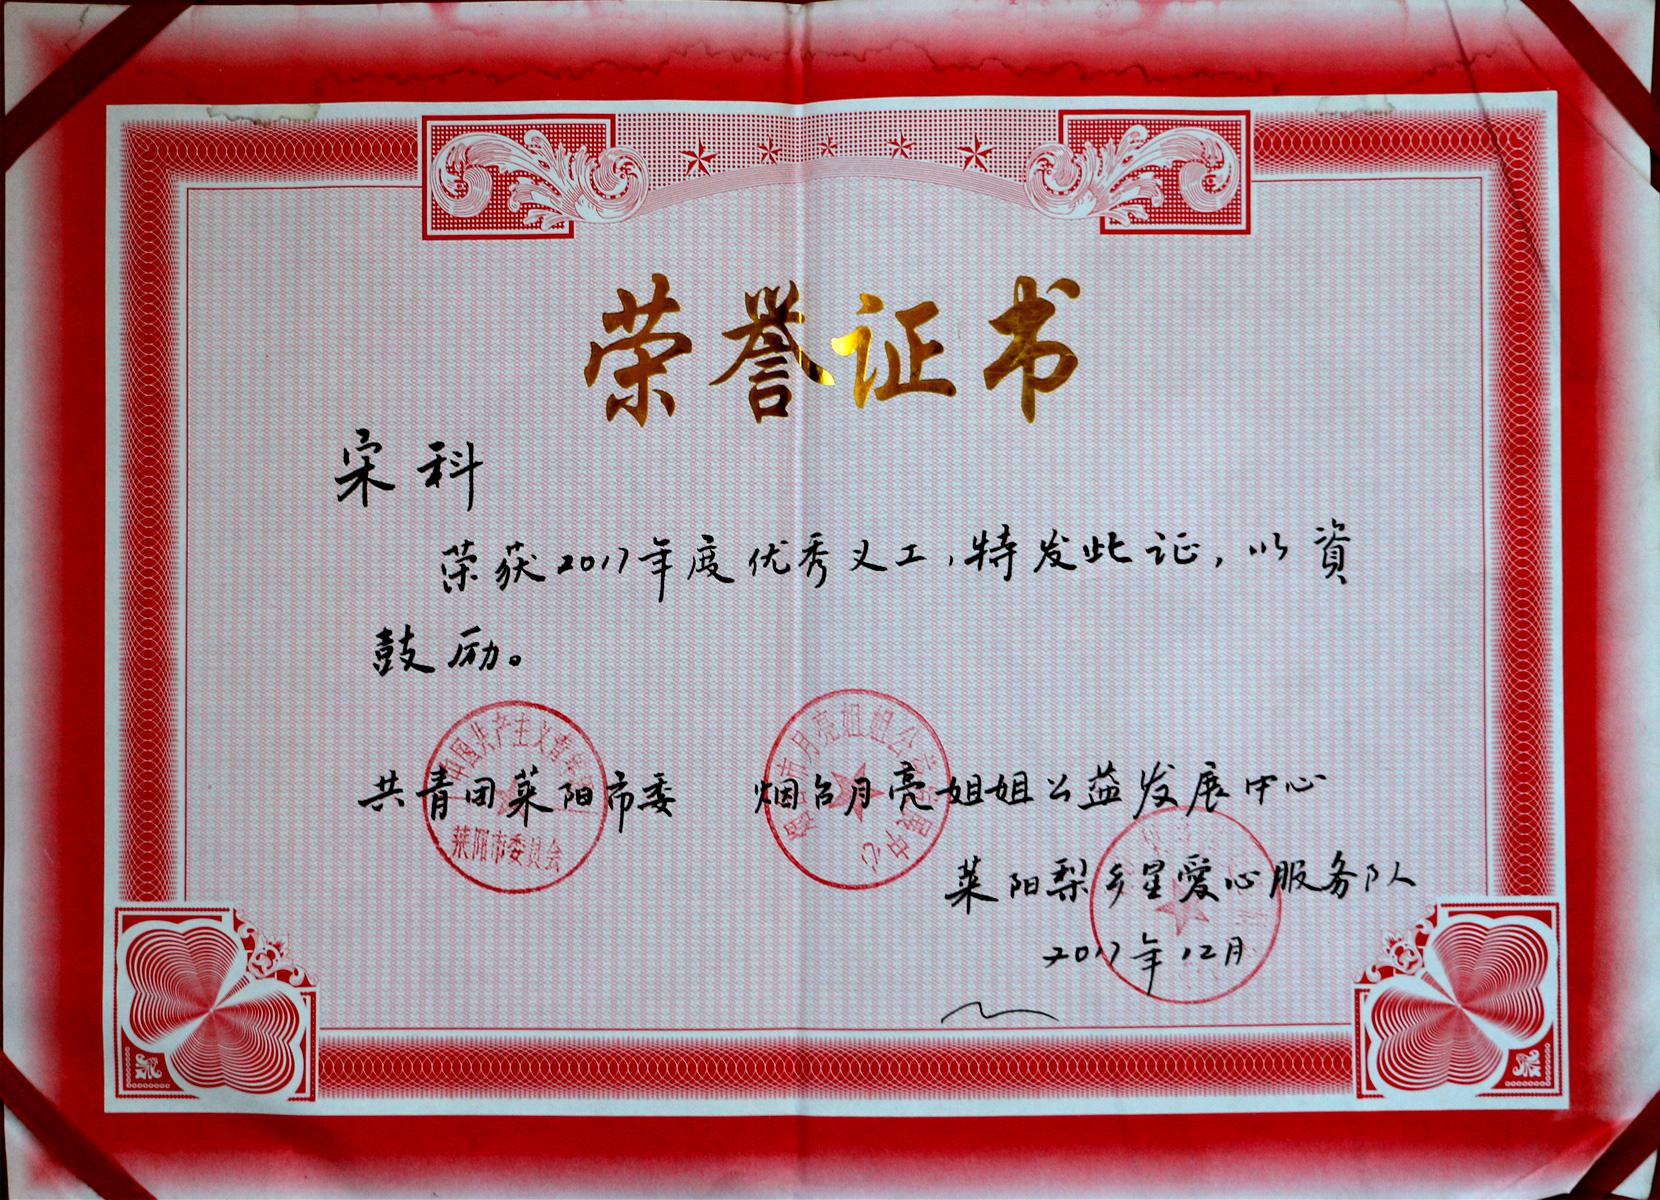 荣誉证书
宋科
荣获2017年度优秀义工,特发此证,以資
鼓励。
中国共产主义青年团
莱阳市委员会
烟台市月亮姐姐公益发展中心
共青团莱阳市委 烟台月亮姐姐公益发展中心
莱阳梨乡星愛心服务队
2017年12月